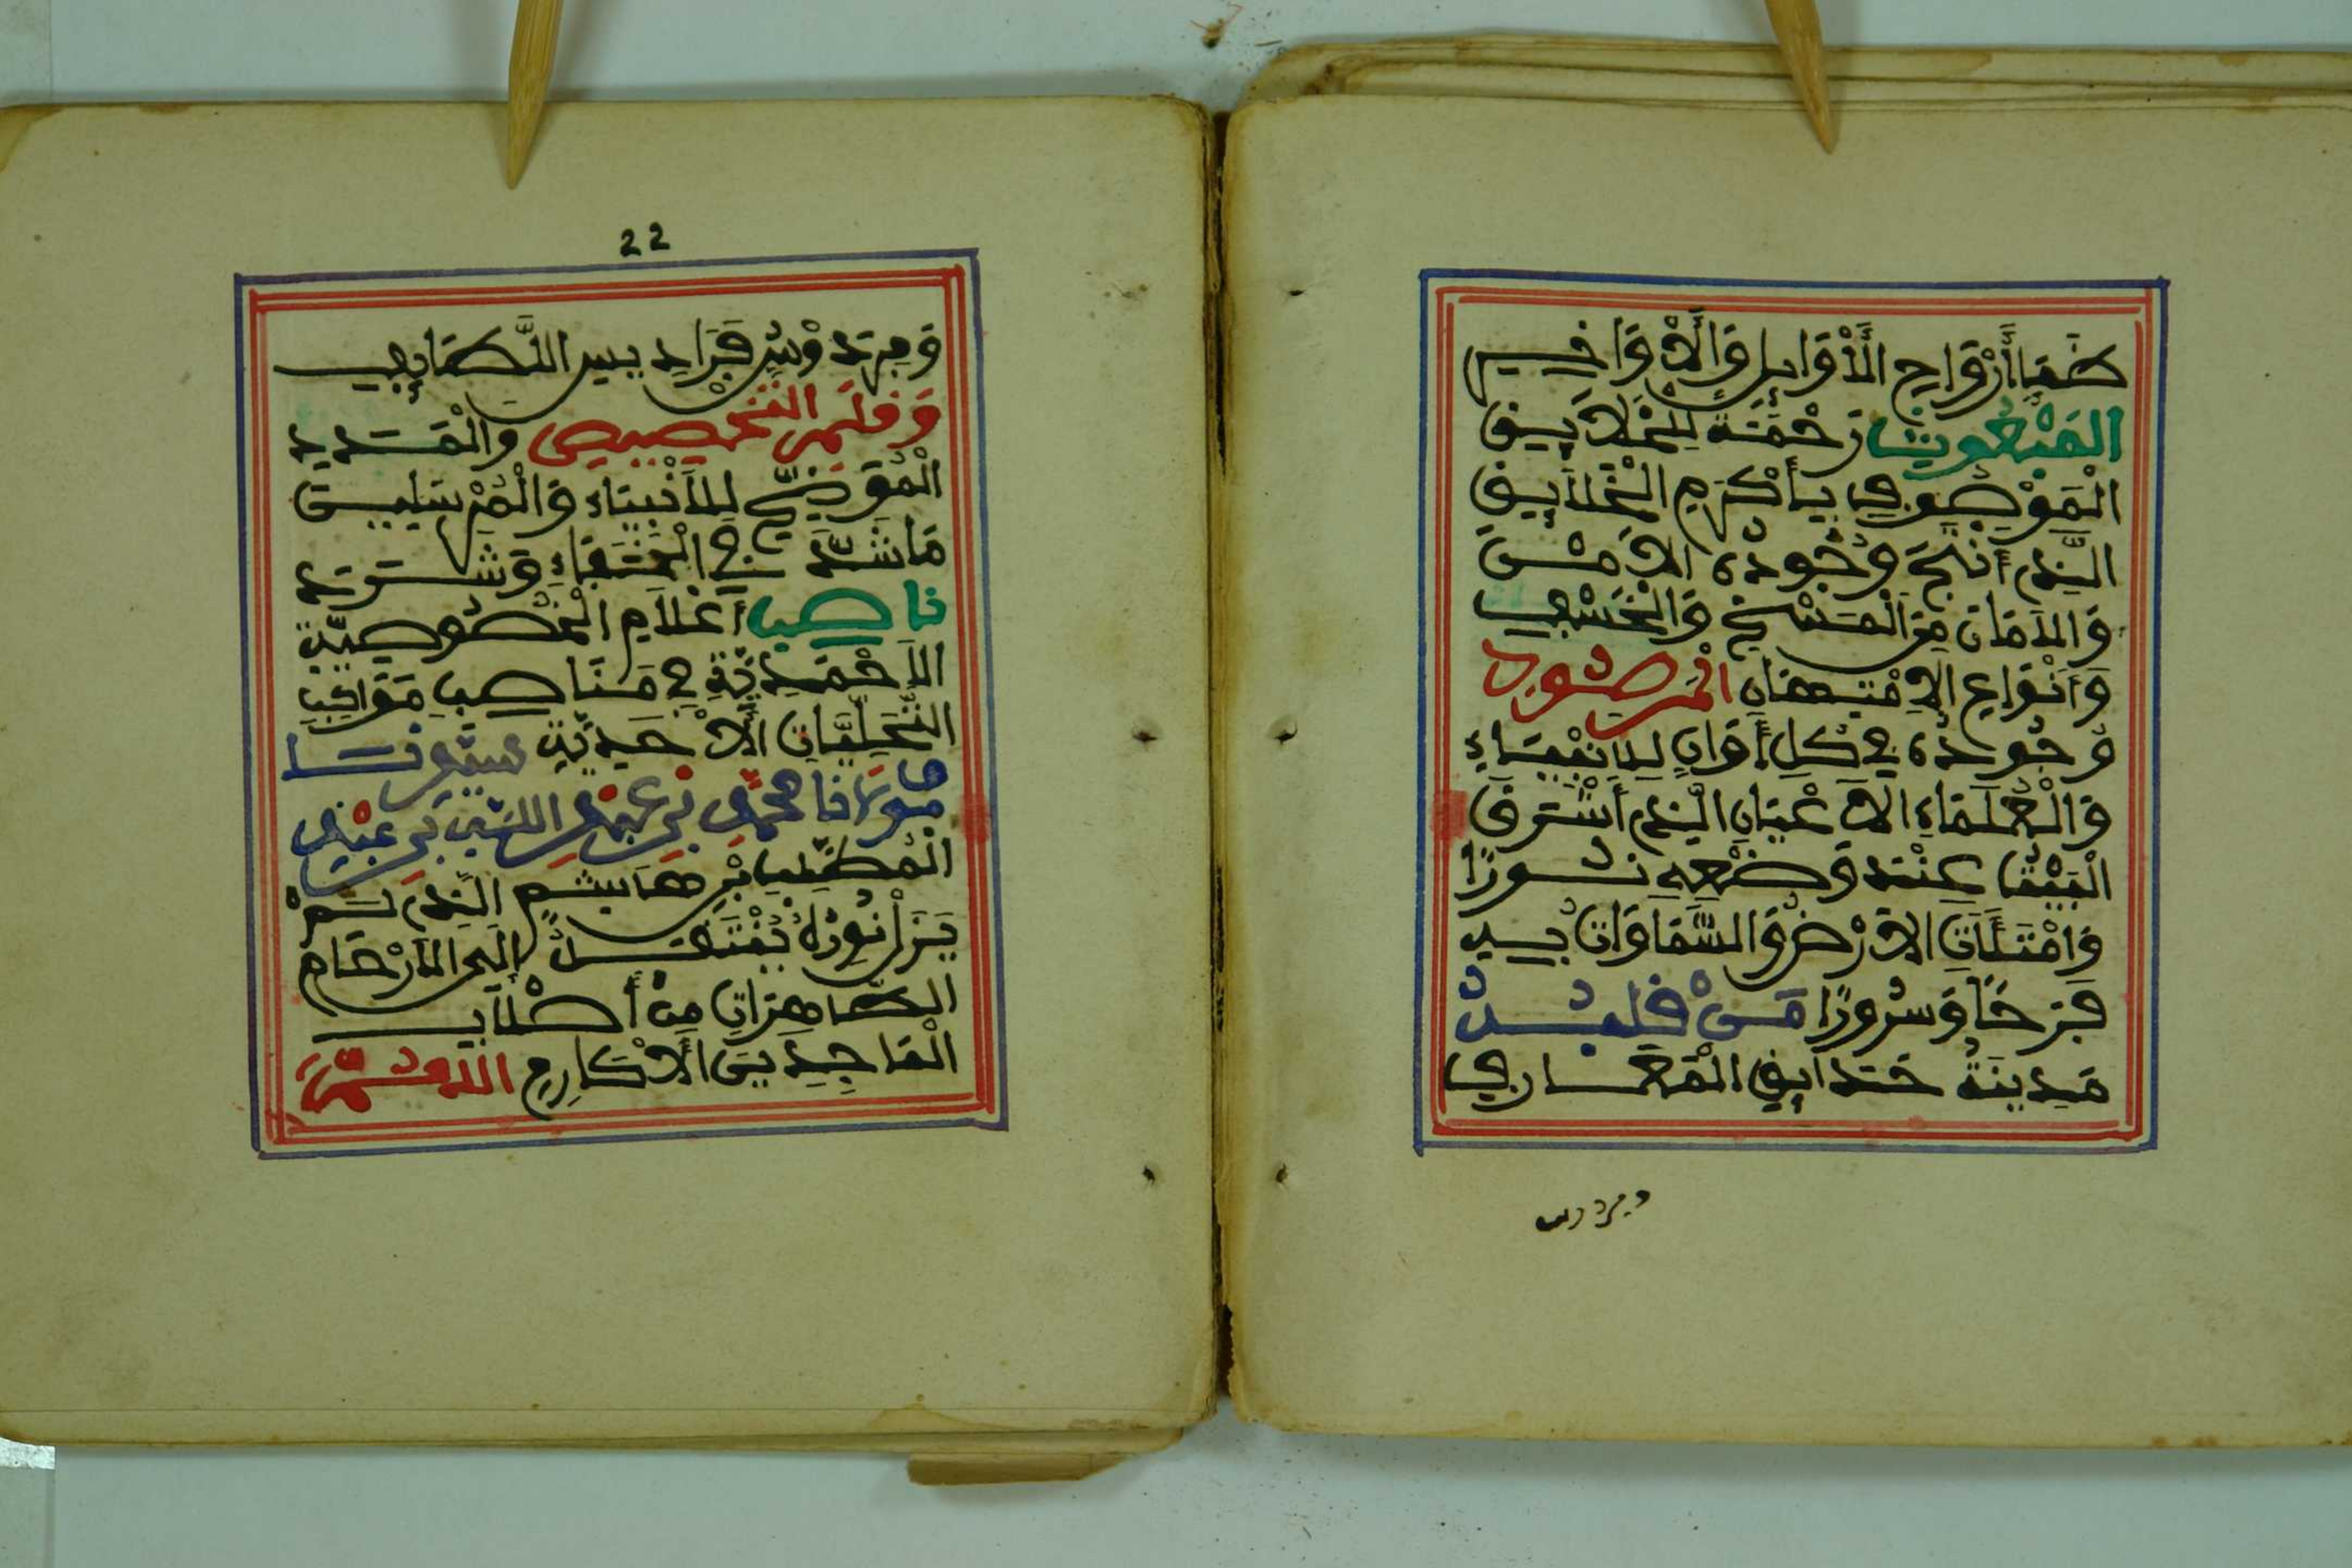 ضمنا أرواح الأوايل والأواخر
المبعوث رحمة للخلايق
الموصوف بأكرم الخلايق
الذي أنتج وجوده الأمن
والأمان من المسخ والخسف
وأنواع الامتهان المرصود
وجوده في كل أوان للأنبياء
والعلماء الأعيان الذي أشرق
البيت عند وضعه نورا
وامتلأت الأرض والسماوات به
فرحا وسرورا من قلبه
مدينة حدايق المعارف
وفردوس
22
وفردوس فراديس اللطايف
وقلم التخصيص والمدد
الموضح للأنبياء والمرسلين
ما شذ في الخفاء وشرد
ناصب أعلام الخصوصية
الأحمدية في مناصب مواكب
التجليات الأحدية سيدنا
مولانا محمد بن عبد الله بن عبد
المطلب بن هاشم الذي لم
يزل نوره ينتقل إلى الأرحام
الطاهرات من أصلاب
الماجدين الأكارم اللهم